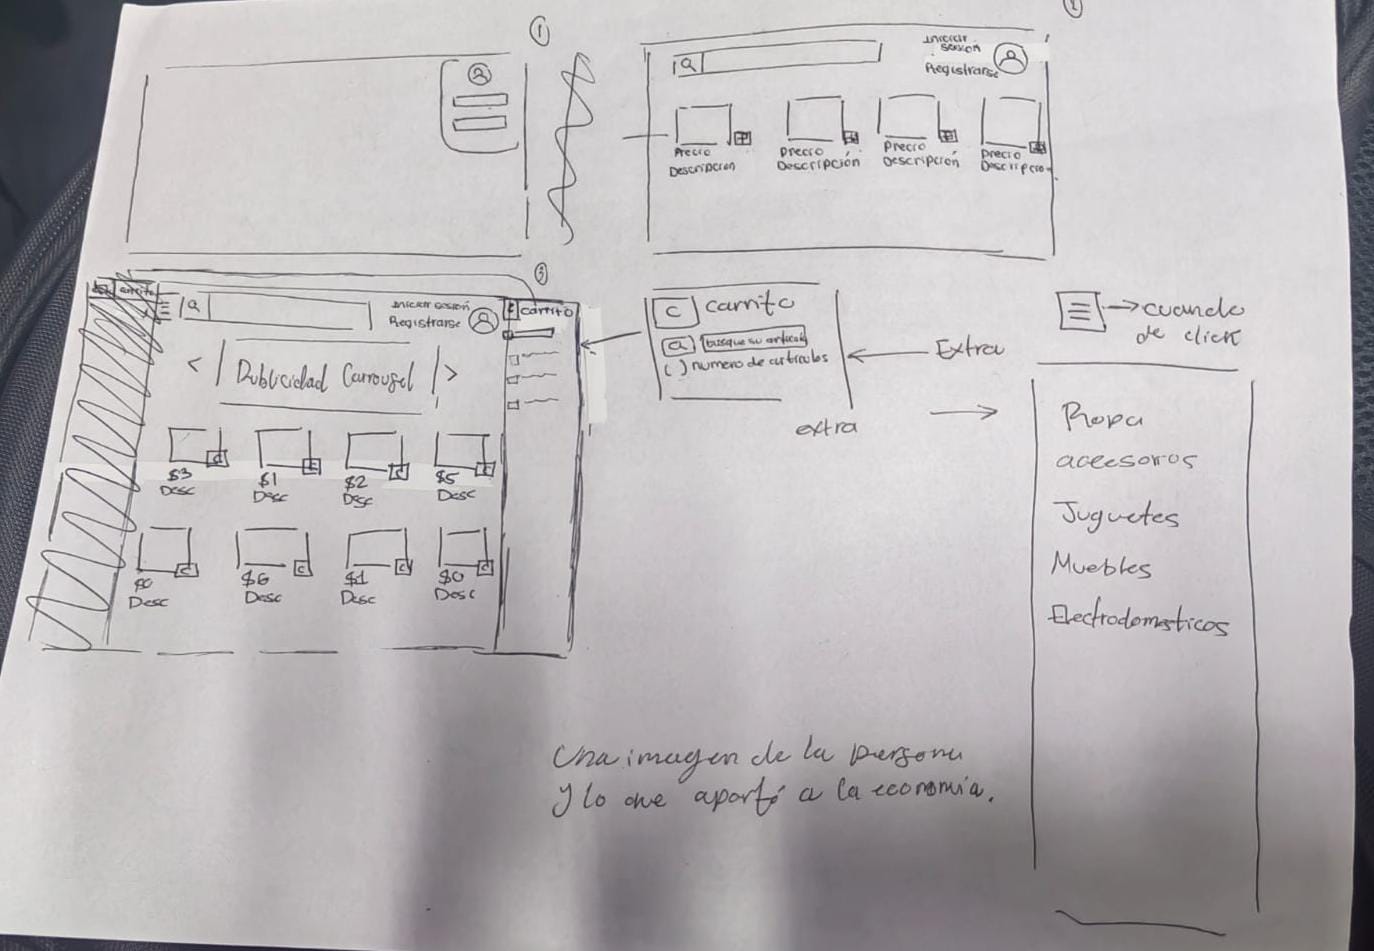 1
2
Iniciar
sesion
Registrarse
Precio
Descripcion
Precio
Descripción
Precio
Descripción
Precio
Descripcion
3
carrito
Iniciar sesión
Registrarse
C carrito
< Publicidad Carrousel >
$3
Desc
$1
Desc
$2
Desc
$5
Desc
$0
Desc
$6
Desc
$1
Desc
$0
Desc
C
C
C
C
C
C
C
C
C carrito
busque su articulo
( ) numero de articulos
Extra
extra
cuando
de click
Ropa
accesorios
Juguetes
Muebles
Electrodomesticos
Una imagen de la persona
y lo que aportó a la economía.